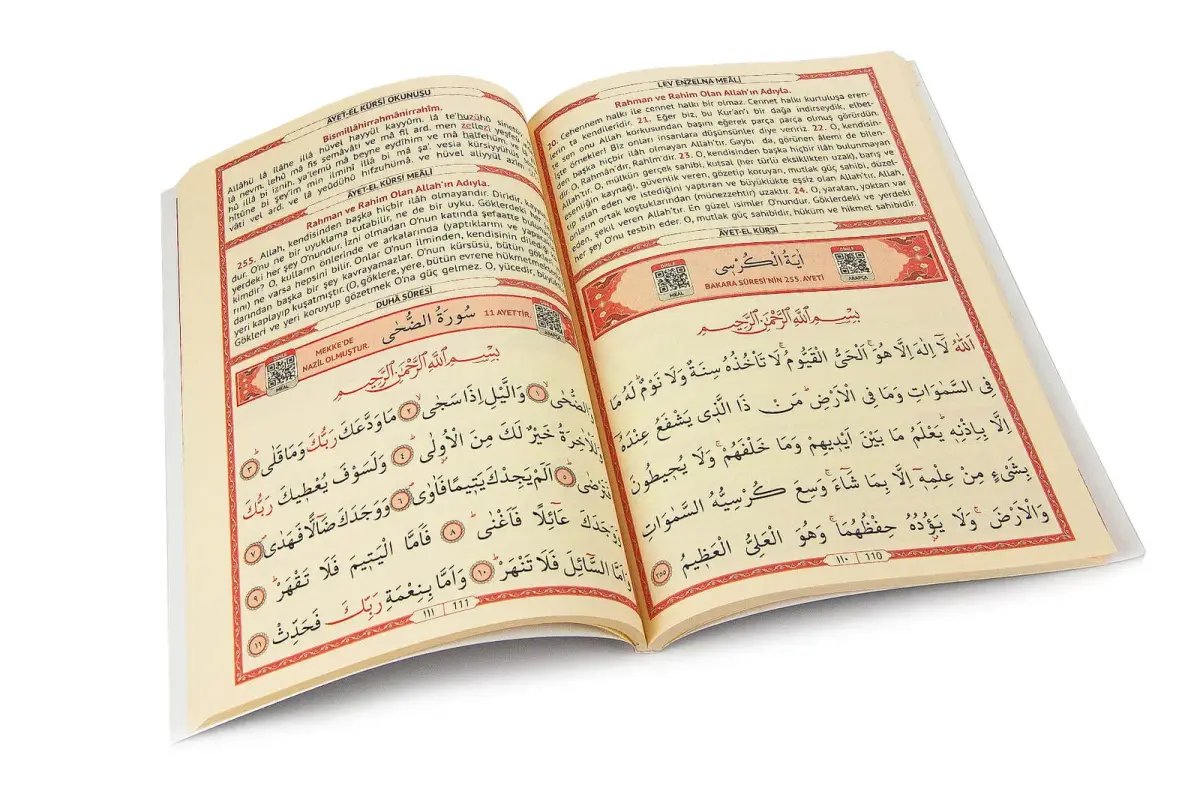 LEV ENZELNA MEÂLİ
Rahman ve Rahim Olan Allah'ın Adıyla.
20. Cehennem halkı ile cennet halkı bir olmaz. Cennet halkı kurtuluşa eren-
lerin ta kendileridir. 21. Eğer biz, bu Kur'an'ı bir dağa indirseydik, elbet-
te sen onu Allah korkusundan başını eğerek parça parça olmuş görürdün.
örnekler! Biz onları insanlara düşünsünler diye veririz. 22. O, kendisin-
den başka hiçbir ilâh olmayan Allah'tır. Gaybı da, görünen âlemi de bilen-
dir. O, Rahmân'dır, Rahîm'dir. 23. O, kendisinden başka hiçbir ilâh bulunmayan
Allah'tır. O, mülkün gerçek sahibi, kutsal (her türlü eksiklikten uzak), barış ve
esenliğin kaynağı, güvenlik veren, gözetip koruyan, mutlak güç sahibi, düzel-
tip ıslah eden ve istediğini yaptıran ve büyüklükte eşsiz olan Allah'tır. Allah,
onların ortak koştuklarından (münezzehtir) uzaktır. 24. O, yaratan, yoktan var
eden, şekil veren Allah'tır. En güzel isimler O'nundur. Göklerdeki ve yerdeki
her şey O'nu tesbih eder. O, mutlak güç sahibidir, hüküm ve hikmet sahibidir.
ÂYET-EL KÜRSİ
اٰيَةُ الْكُرْسِى
BAKARA SÛRESİ'NİN 255. AYETİ
DİNLE MEAL
DİNLE ARAPÇA
بِسْمِ اللّٰهِ الرَّحْمٰنِ الرَّحِيمِ
اَللّٰهُ لَآ اِلٰهَ اِلَّا هُوَۚ اَلْحَىُّ الْقَيُّومُۚ لَا تَأْخُذُهُ سِنَةٌ وَلَا نَوْمٌۜ لَهُ مَا
فِى السَّمٰوَاتِ وَمَا فِى الْاَرْضِۜ مَنْ ذَا الَّذٖى يَشْفَعُ عِنْدَهُٓ
اِلَّا بِاِذْنِهٖۜ يَعْلَمُ مَا بَيْنَ اَيْدٖيهِمْ وَمَا خَلْفَهُمْۚ وَلَا يُحٖيطُونَ
بِشَىْءٍ مِنْ عِلْمِهٖٓ اِلَّا بِمَا شَٓاءَۚ وَسِعَ كُرْسِيُّهُ السَّمٰوَاتِ
وَالْاَرْضَۚ وَلَا يَؤُدُهُ حِفْظُهُمَاۚ وَهُوَ الْعَلِىُّ الْعَظٖيمُ ﴿٢٥٥﴾
١١٠ 110
ÂYET-EL KÜRSİ OKUNUŞU
Bismillâhirrahmânirrahîm.
Allâhü lâ ilâhe illâ hüvel hayyül kayyûm. lâ te'huzühû sinetün
lâ nevm. lehû mâ fis semâvâti ve mâ fil ard. men zellezî yeşfeu
hû illâ bi iznih. ya'lemü mâ beyne eydîhim ve mâ halfehüm. ve lâ
hîtûne bi şey'im min ilmihî illâ bi mâ şa'. vesia kürsiyyühüs
vâti vel ard. ve lâ yeûdühû hıfzuhümâ. ve hüvel aliyyül azîm.
ÂYET-EL KÜRSİ MEÂLİ
Rahman ve Rahim Olan Allah'ın Adıyla.
255. Allah, kendisinden başka hiçbir ilâh olmayandır. Diridir, kayyum-
dur. O'nu ne bir uyuklama tutabilir, ne de bir uyku. Göklerdeki her
yerdeki her şey O'nundur. İzni olmadan O'nun katında şefaatte bulunacak
kimdir? O, kulların önlerinde ve arkalarında (yaptıklarını ve yapacakla-
rını) ne varsa hepsini bilir. Onlar O'nun ilminden, kendisinin dilediği
darından başka bir şey kavrayamazlar. O'nun kürsüsü, bütün gökleri
yeri kaplayıp kuşatmıştır. (O, göklere, yere, bütün evrene hükmetmektedir)
Gökleri ve yeri koruyup gözetmek O'na güç gelmez. O, yücedir, büyük
DUHÂ SÛRESİ
سُورَةُ الضُّحٰى
11 AYETTİR.
MEKKE'DE
NAZİL OLMUŞTUR.
DİNLE MEAL
ARAPÇA
بِسْمِ اللّٰهِ الرَّحْمٰنِ الرَّحِيمِ
الضُّحٰىۙ ﴿١﴾ وَالَّيْلِ اِذَا سَجٰىۙ ﴿٢﴾ مَا وَدَّعَكَ رَبُّكَ وَمَا قَلٰىۜ ﴿٣﴾
وَلَلْاٰخِرَةُ خَيْرٌ لَكَ مِنَ الْاُولٰىۜ ﴿٤﴾ وَلَسَوْفَ يُعْطٖيكَ رَبُّكَ
فَتَرْضٰىۜ ﴿٥﴾ اَلَمْ يَجِدْكَ يَتٖيمًا فَاٰوٰىۖ ﴿٦﴾ وَوَجَدَكَ ضَٓالًّا فَهَدٰىۖ ﴿٧﴾
وَوَجَدَكَ عَٓائِلًا فَاَغْنٰىۜ ﴿٨﴾ فَاَمَّا الْيَتٖيمَ فَلَا تَقْهَرْۜ ﴿٩﴾
وَاَمَّا السَّٓائِلَ فَلَا تَنْهَرْۜ ﴿١٠﴾ وَاَمَّا بِنِعْمَةِ رَبِّكَ فَحَدِّثْ ﴿١١﴾
١١١ 111